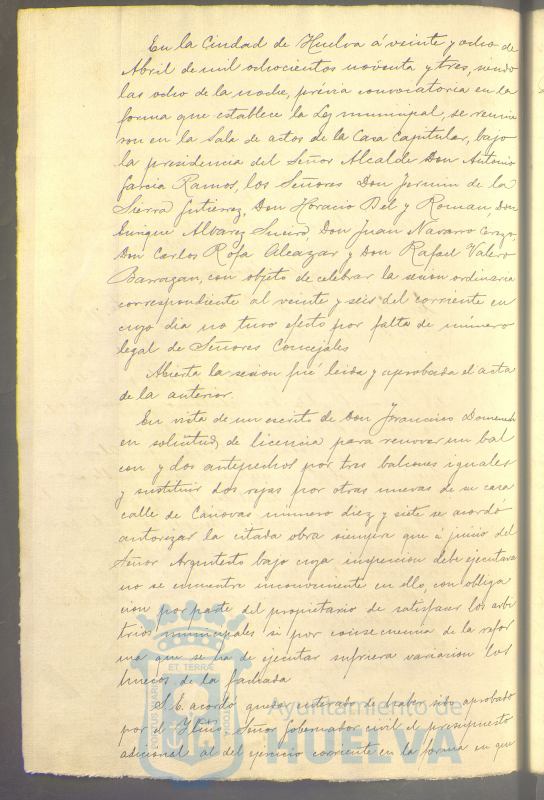 En la Ciudad de Huelva á veinte y ocho de
Abril de mil ochocientos noventa y tres, siendo
las ocho de la noche, prévia convocatoria en la
forma que establece la Ley municipal, se reunie
ron en la Sala de actos de la Casa Capitular, bajo
la presidencia del Señor Alcalde Don Antonio
Garcia Ramos, los Señores Don Fermin de la
Sierra Gutierrez, Don Horacio Bel y Roman, Don
Enrique Alvarez Sueiro, Don Juan Navarro
Don Carlos Rofa Alcazar y Don Rafael Valero
Barragan, con objeto de celebrar la sesion ordinaria
correspondiente al veinte y seis del corriente en
cuyo dia no tuvo efecto por falta de número
legal de Señores Concejales
Abierta la sesion fué leida y aprobada el acta
de la anterior.
En vista de un escrito de Don Francisco Domenech
en solicitud de licencia para renovar un bal
con y dos antepechos por tres balcones iguales
y sustituir dos rejas por otras nuevas de su casa
calle de Cánovas número diez y siete se acordó
autorizar la citada obra siempre que á juicio del
Señor Arquitecto bajo cuya inspeccion debe ejecutarse
no se encuentre inconveniente en ello, con obliga
cion por parte del propietario de satisfacer los arbi
trios municipales si por consecuencia de la refor
ma que se ha de ejecutar sufriera variacion los
huecos de la fachada
S.E. acordó quedar enterado de haber sido aprobado
por el Yltmo Señor Gobernador civil el presupuesto
adicional al del ejercicio corriente en la forma en que
Ayuntamiento de
HUELVA
PORTUS MARIS
ET TERRÆ
CUSTODIA